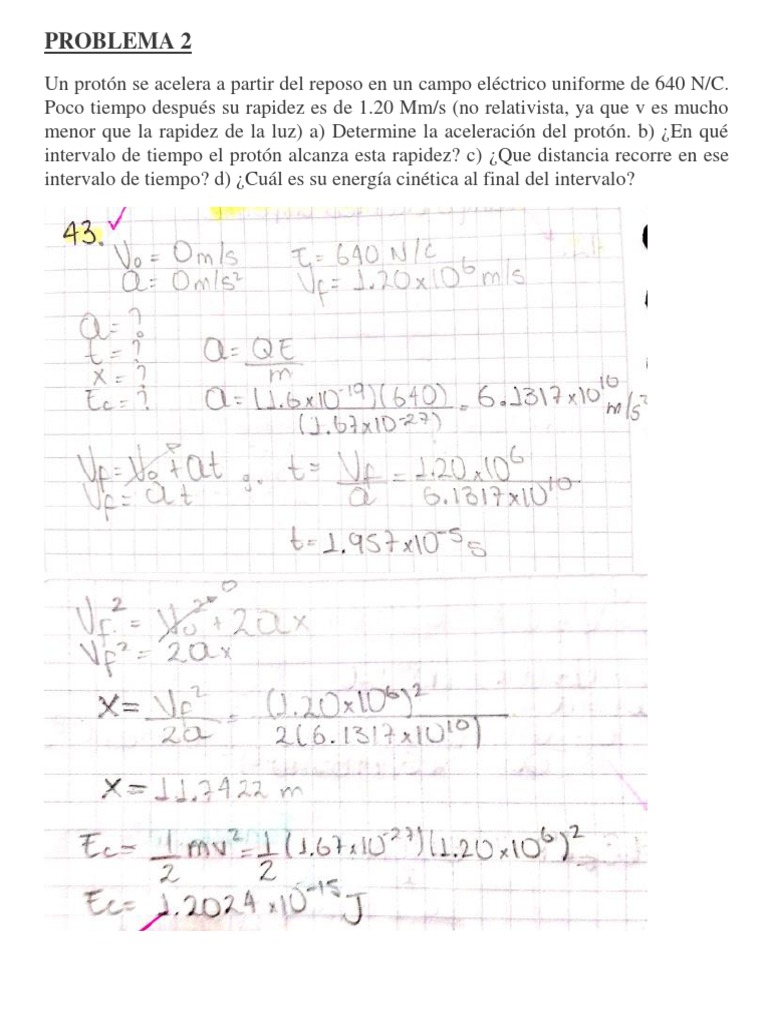 PROBLEMA 2
Un protón se acelera a partir del reposo en un campo eléctrico uniforme de 640 N/C.
Poco tiempo después su rapidez es de 1.20 Mm/s (no relativista, ya que v es mucho
menor que la rapidez de la luz) a) Determine la aceleración del protón. b) ¿En qué
intervalo de tiempo el protón alcanza esta rapidez? c) ¿Que distancia recorre en ese
intervalo de tiempo? d) ¿Cuál es su energía cinética al final del intervalo?
43.
V₀ = 0 m/s E = 640 N/C
a = 0 m/s² Vf = 1.20x10⁶ m/s
a = ?
t = ? a = QE/m
x = ?
Ec = ? a = (1.6x10⁻¹⁹)(640)/(1.67x10⁻²⁷) = 6.1317x10¹⁰ m/s²
Vf = V₀ + at t = Vf/a = 1.20x10⁶/6.1317x10¹⁰
Vf = at
t = 1.957x10⁻⁵ s
Vf² = V₀² + 2ax
Vf² = 2ax
x = Vf²/2a = (1.20x10⁶)²/2(6.1317x10¹⁰)
x = 11.7422 m
Ec = 1/2 mv² = 1/2 (1.67x10⁻²⁷)(1.20x10⁶)²
Ec = 1.2024x10⁻¹⁵ J